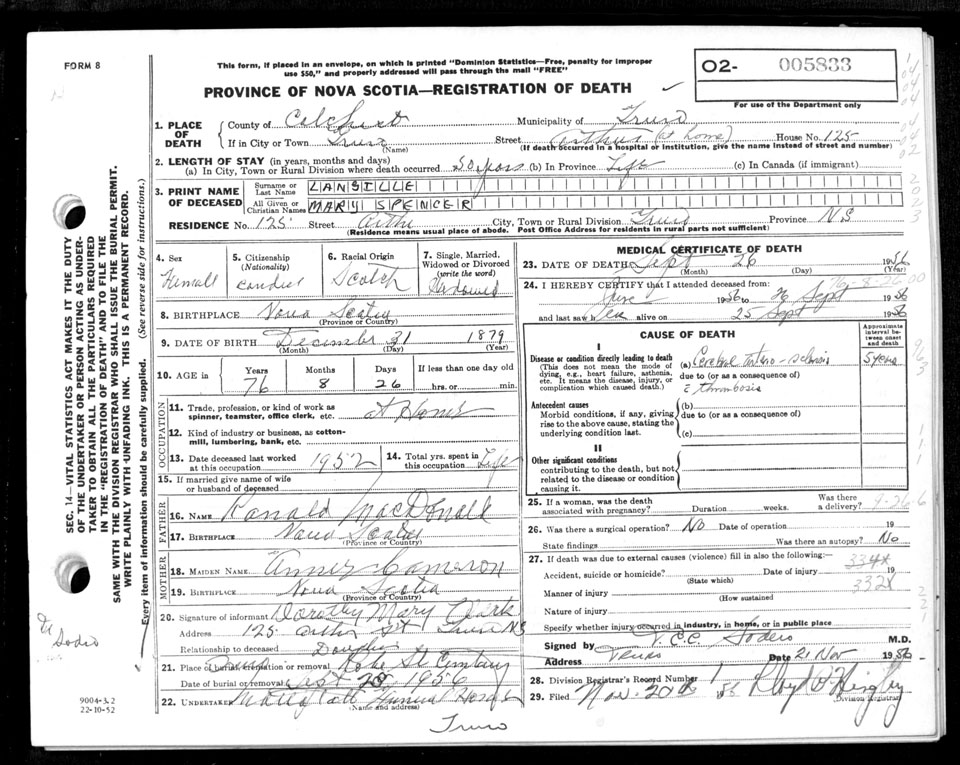 FORM 8
This form, if placed in an envelope, on which is printed "Dominion Statistics—Free, penalty for improper
use $50," and properly addressed will pass through the mail "FREE"
PROVINCE OF NOVA SCOTIA—REGISTRATION OF DEATH
O2- 005833
For use of the Department only
1. PLACE OF DEATH
County of Colchester Municipality of Truro
If in City or Town Truro (Name) Street Arthur (at home) House No. 125
(If death occurred in a hospital or institution, give the name instead of street and number)
2. LENGTH OF STAY (in years, months and days)
(a) In City, Town or Rural Division where death occurred 50 years (b) In Province Life (c) In Canada (if immigrant)
3. PRINT NAME OF DECEASED
Surname or Last Name LANGILLE
All Given or Christian Names MARY SPENCER
RESIDENCE No. 125 Street Arthur City, Town or Rural Division Truro Province N S
(Residence means usual place of abode. Post Office Address for residents in rural parts not sufficient)
4. Sex Female
5. Citizenship (Nationality)
6. Racial Origin Scotch
7. Single, Married, Widowed or Divorced (write the word) Widowed
8. BIRTHPLACE Nova Scotia
(Province or Country)
9. DATE OF BIRTH December 31 1879
(Month) (Day) (Year)
10. AGE in Years 76 Months 8 Days 26 If less than one day old hrs. or min.
OCCUPATION
11. Trade, profession, or kind of work as spinner, teamster, office clerk, etc. at Home
12. Kind of industry or business, as cotton-mill, lumbering, bank, etc.
13. Date deceased last worked at this occupation 1952
14. Total yrs. spent in this occupation Life
15. If married give name of wife or husband of deceased
FATHER
16. NAME Ranald MacDonald
17. BIRTHPLACE Nova Scotia
(Province or Country)
MOTHER
18. MAIDEN NAME Cameron
19. BIRTHPLACE Nova Scotia
(Province or Country)
20. Signature of informant Dorothy Mary Clark
Address 125 Arthur St Truro N S
Relationship to deceased Daughter
21. Place of burial, cremation or removal Robie St Cemetery
Date of burial or removal 1956
22. UNDERTAKER Funeral Home
(Name and address)
Truro
MEDICAL CERTIFICATE OF DEATH
23. DATE OF DEATH Sept 26 1956
(Month) (Day) (Year)
24. I HEREBY CERTIFY that I attended deceased from:
June 1956 to 26 Sept 1956
and last saw her alive on 25 Sept 1956
CAUSE OF DEATH
Approximate interval between onset and death
I
Disease or condition directly leading to death
(This does not mean the mode of dying, e.g., heart failure, asthenia, etc. It means the disease, injury, or complication which caused death.)
(a) Cerebral Arterio-sclerosis 5 years
due to (or as a consequence of)
c̄ thrombosis
Antecedent causes
Morbid conditions, if any, giving rise to the above cause, stating the underlying condition last.
(b)
due to (or as a consequence of)
(c)
II
Other significant conditions
contributing to the death, but not related to the disease or condition causing it.
25. If a woman, was the death associated with pregnancy? Duration weeks. Was there a delivery?
26. Was there a surgical operation? No Date of operation 19
State findings Was there an autopsy? No
27. If death was due to external causes (violence) fill in also the following:—
Accident, suicide or homicide? (State which) Date of injury 19
Manner of injury
(How sustained)
332X
Nature of injury
Specify whether injury occurred in industry, in home, or in public place
Signed by M.D.
Address Truro Date 21 Nov 1956
28. Division Registrar's Record Number
29. Filed Nov. 20th
Division Registrar
SEC. 14—VITAL STATISTICS ACT MAKES IT THE DUTY
OF THE UNDERTAKER OR PERSON ACTING AS UNDER-
TAKER TO OBTAIN ALL THE PARTICULARS REQUIRED
IN THE "REGISTRATION OF DEATH" AND TO FILE THE
SAME WITH THE DIVISION REGISTRAR WHO SHALL ISSUE THE BURIAL PERMIT.
WRITE PLAINLY WITH UNFADING INK. THIS IS A PERMANENT RECORD.
Every item of information should be carefully supplied. (See reverse side for instructions.)
9004-3.2
22-10-52